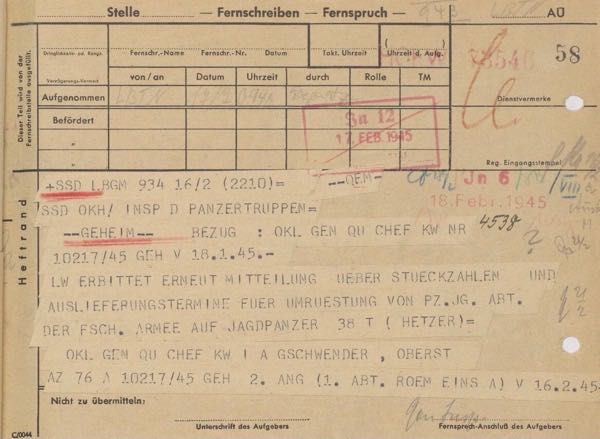 Stelle — Fernschreiben — Fernspruch — AÜ
Dieser Teil wird von der Fernschreibstelle ausgefüllt.
Fernschr.-Name Fernschr.-Nr. Datum Takt. Uhrzeit Uhrzeit d. Aufg.
58
von / an Datum Uhrzeit durch Rolle TM
Aufgenommen
Dienstvermerke
Befördert
"
"
Jn 12
17. FEB. 1945
Reg. Eingangsstempel
+SSD LBGM 934 16/2 (2210)= --QEM--
Jn 6
VIII
SSD OKH/ INSP D PANZERTRUPPEN=
18. Febr. 1945
--GEHEIM-- BEZUG : OKL GEN QU CHEF KW NR 4538
?
10217/45 GEH V 18.1.45.-
LW ERBITTET ERNEUT MITTEILUNG UEBER STUECKZAHLEN UND
AUSLIEFERUNGSTERMINE FUER UMRUESTUNG VON PZ.JG. ABT.
DER FSCH. ARMEE AUF JAGDPANZER 38 T (HETZER)=
OKL GEN QU CHEF KW I A GSCHWENDER, OBERST
AZ 76 A 10217/45 GEH 2. ANG (1. ABT. ROEM EINS A) V 16.2.45-
Heftrand
Nicht zu übermitteln:
Unterschrift des Aufgebers Fernsprech-Anschluß des Aufgebers
C/0044